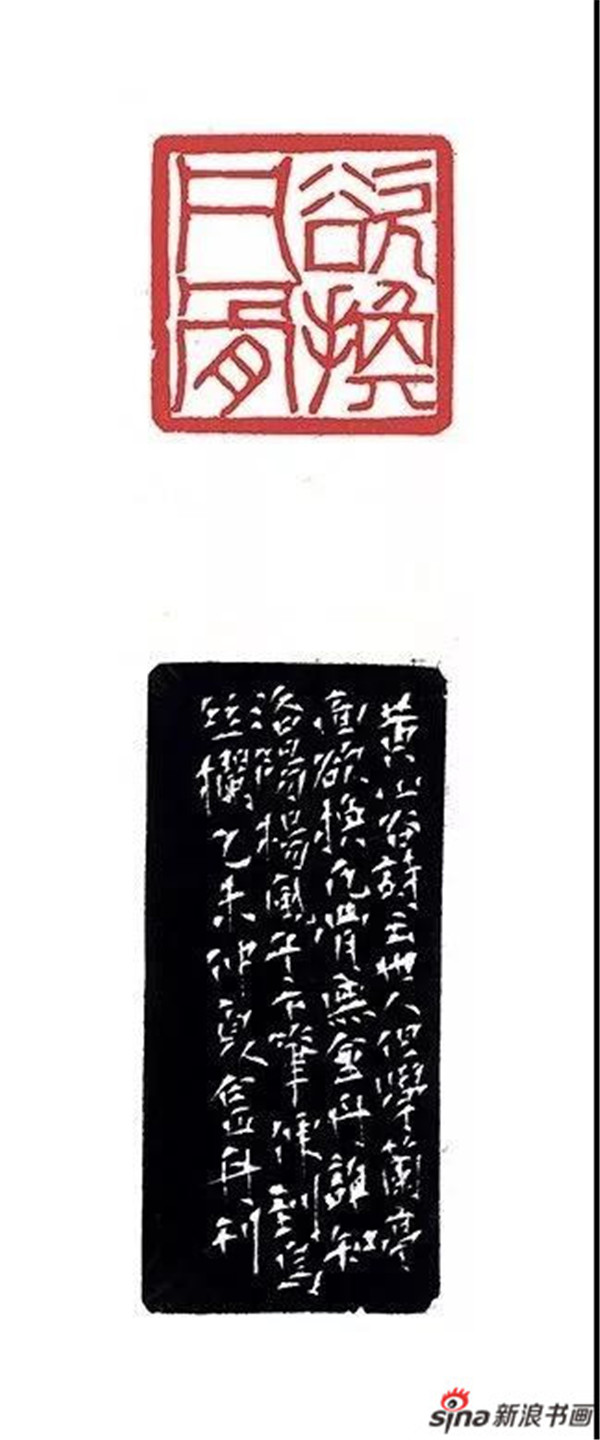 欲換
凡骨
黄山谷詩云世人但學蘭亭
面欲換凡骨無金丹誰知
洛陽楊風子下筆便到烏
絲欄乙未仲夏刊
sina新浪书画